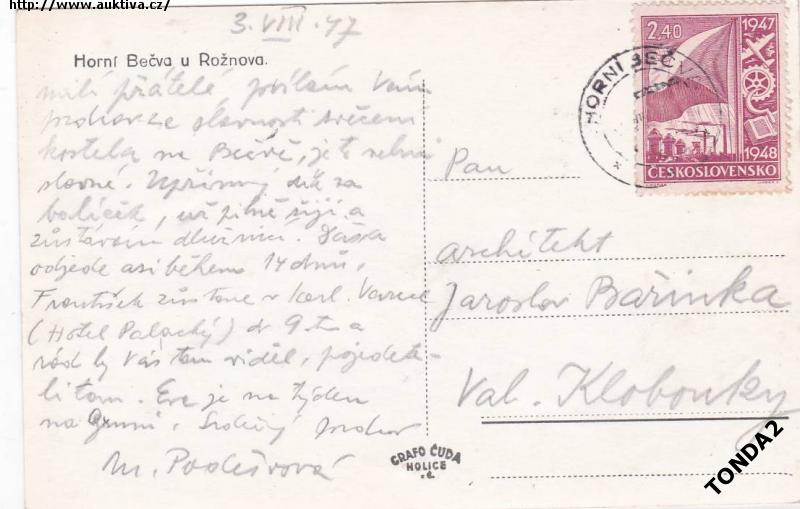 http://www.auktiva.cz/
3. VIII. 47
Horní Bečva u Rožnova.
milí přátelé posílám Vám
pozdrav ze slavnosti svěcení
kostela na Bečvě, je to velmi
slavné. Upřímný dík za
balíček, už pilně šiji a
zůstávám dlužnicí.
odjede asi během 14 dnů,
František zůstane v Karl. Varech
(Hotel Palacký) do 9.t. a
rád by Vás tam viděl, pojedete-
li tam. Eva je na týden
na Srdečný pozdrav
M. Poděšvová
Pan
architekt
Jaroslav Bařinka
Val. Klobouky
HORNÍ BEČ
2,40
1947
1948
ČESKOSLOVENSKO
GRAFO ČUDA
HOLICE
v.č.
TONDA2